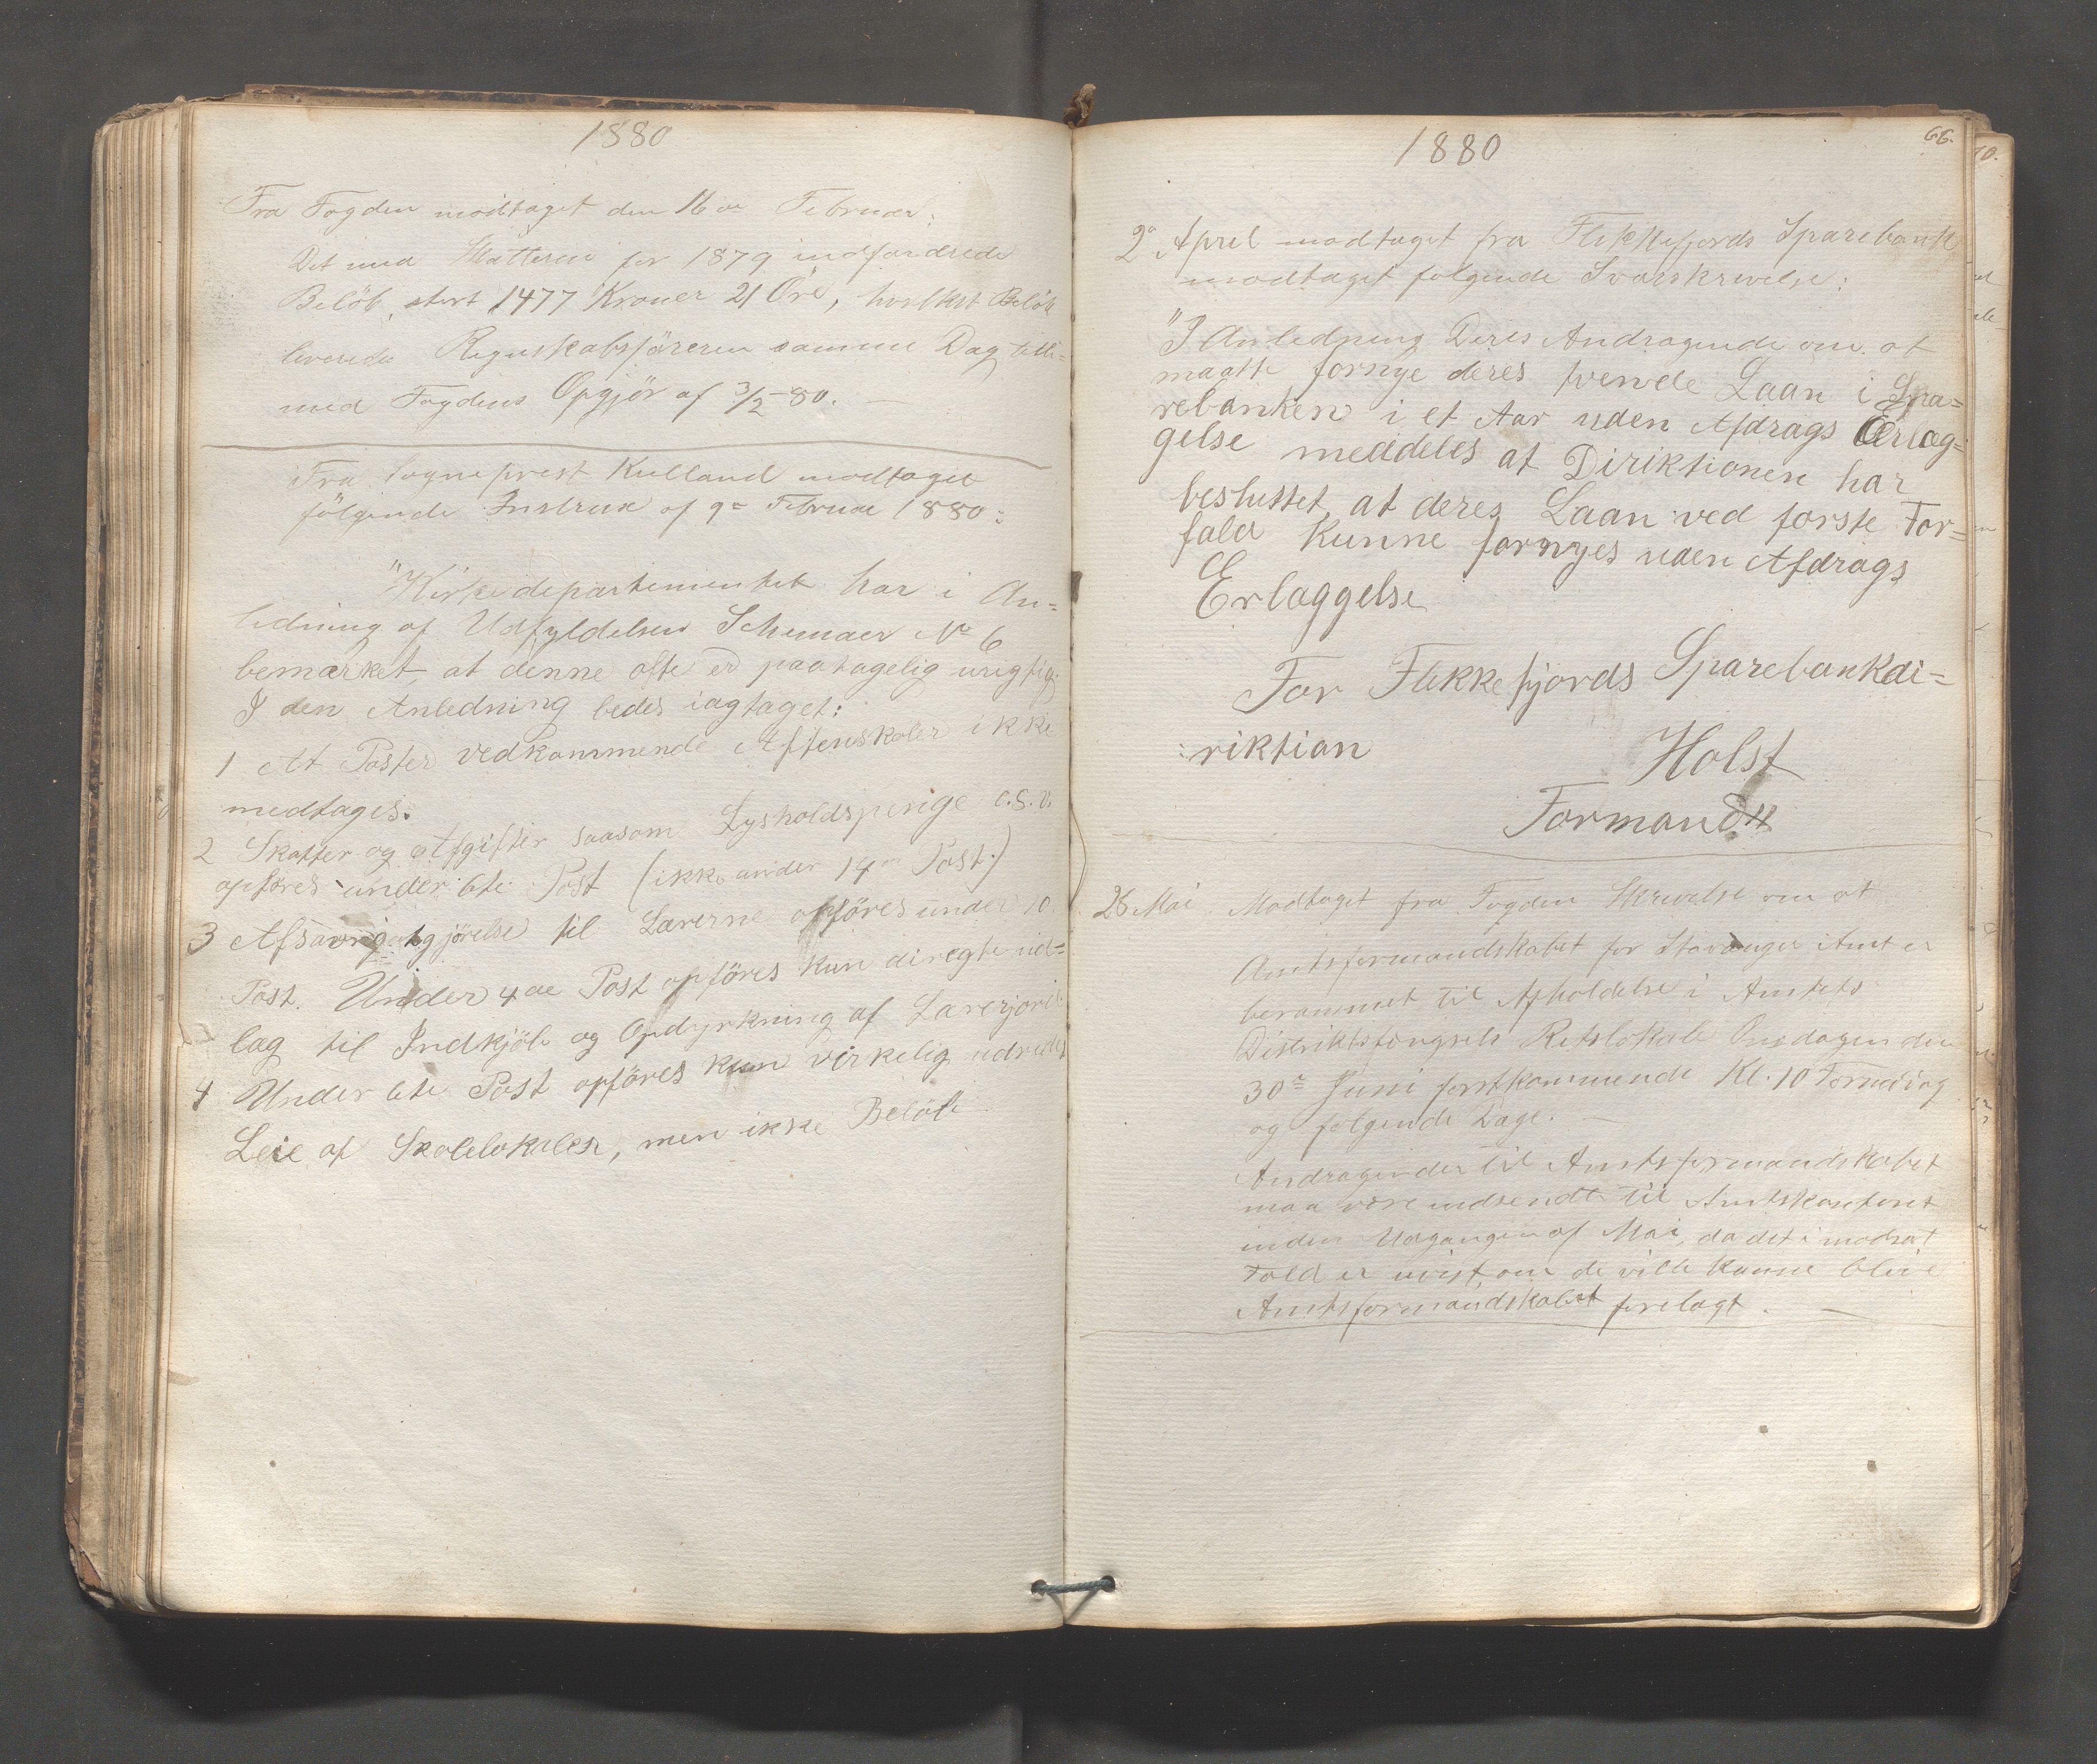 1880
Fra Fogden modtaget den 16de Februar:
Det med Skatterne for 1879 indfordrede
Belöb, stort 1477 Kroner 21 Öre, hvilket Belöb
leverede Regnskabsföreren samme Dag tilli=
med Fogdens Opgjör af 3/2-80. —
Fra Sogneprest Kulland modtaget
fölgende Instrux af 9de Februar 1880:
"Kirkedepartementet har i An=
ledning af Udfyldelsen Schemaer No 6
bemærket, at denne ofte er paatagelig urigtig.
I den Anledning bedes iagtaget:
1 At Poster vedkommende Aftenskoler ikke
medtages.
2 Skatter og Afgifter saasom Lysholdspenge o.s.v.
opföres under 6te Post (ikke under 14de Post.)
3 Afsavnsgodtgjörelse til Lærerne opföres under 10
Post. Under 4de Post opföres kun diregte ud=
lag til Indkjöb og Opdyrkning af Lærerjord.
4 Under 6te Post opföres kun virkelig udredet
Leie af Skolelokaler, men ikke Belöb
1880
66.
2den April modtaget fra Flekkefjords Sparebank
modtaget følgende Svarskrivelse:
"I Anledning Deres Andragende om at
maatte fornye deres tvende Laan i Spa=
rebanken i et Aar uden Afdrags Erlæg=
gelse meddeles at Diriktionen har
besluttet, at deres Laan ved første For=
fald kunne fornyes uden Afdrags
Erlæggelse
For Flekkefjords Sparebankdi=
:riktion Holst
Formand"
28 Mai Modtaget fra Fogden Skrivelse om at
Amtsformandskabet for Stavanger Amt er
berammet til Afholdelse i Amtets
Distriktsfengsels Retslokale Onsdagen den
30te Juni førstkommende Kl. 10 Formidag
og følgende Dage. —
Andragender til Amtsformandskabet
maa være indsendte til Amtskontoret
inden Udgangen af Mai, da det i modsat
Fald er uvist, om de ville kunne blive
Amtsformandskabet forelagt. —